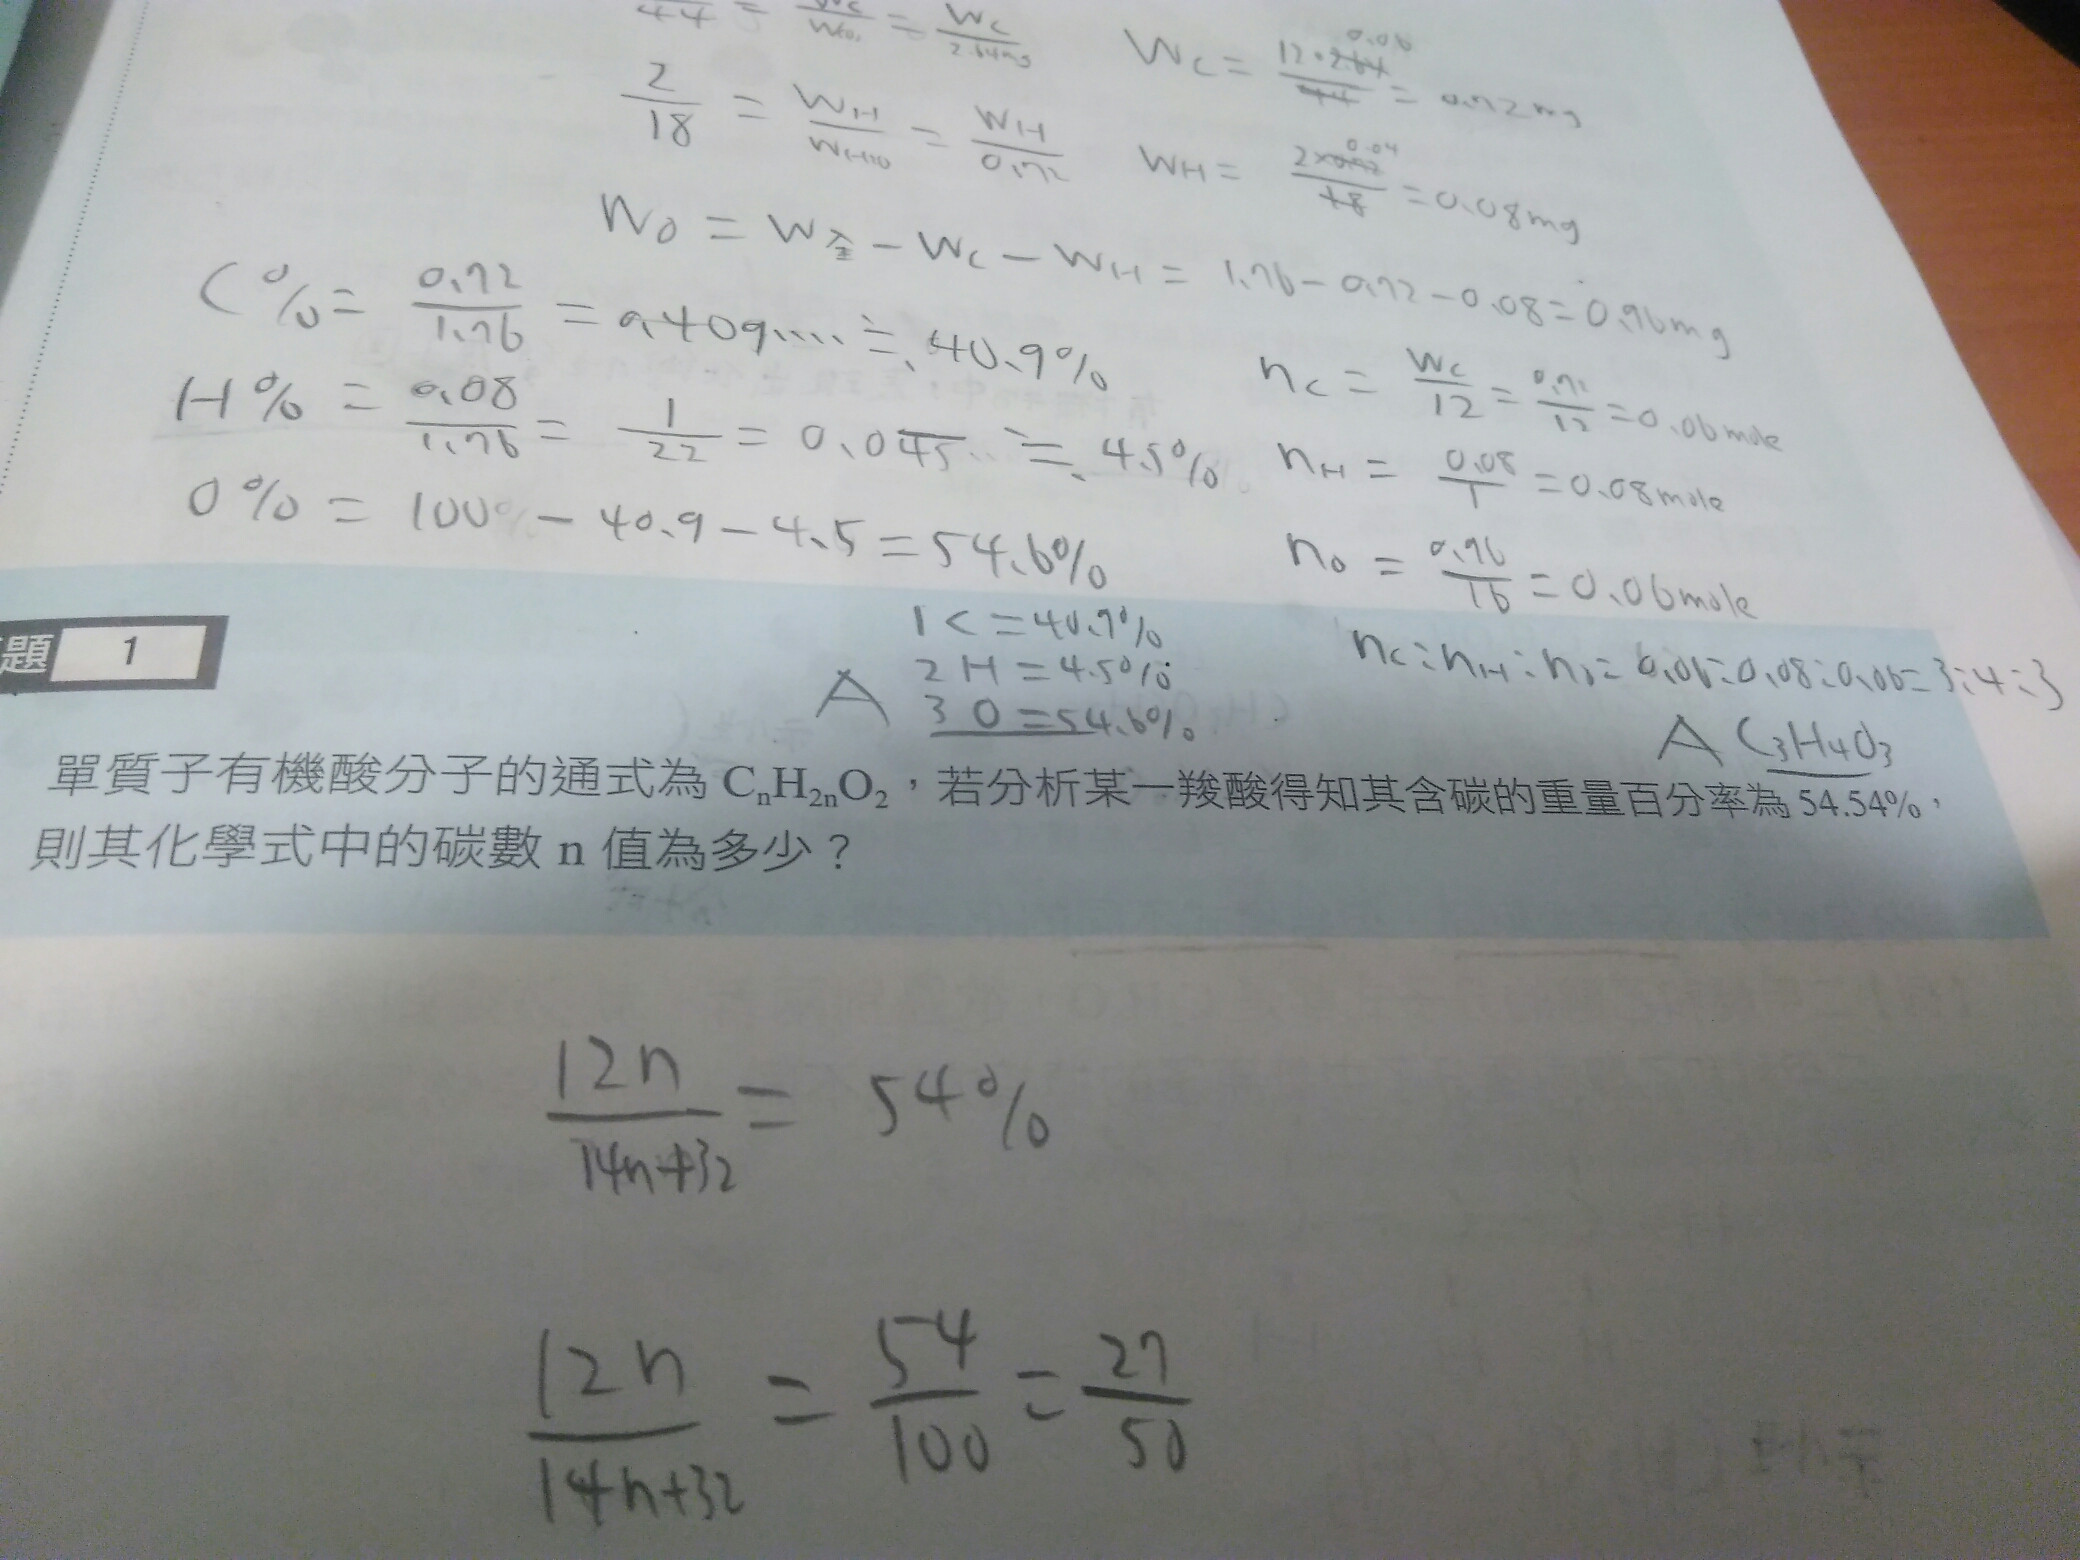 44 = = Wc / 2.64mg Wc = 12×2.64 / 44 = 0.72mg
0.06
2/18 = WH/WH2O = WH/0.72 WH = 2×0.72 / 18 = 0.08mg
0.04
WO = W全 - WC - WH = 1.76 - 0.72 - 0.08 = 0.96mg
C% = 0.72/1.76 = 0.409.... ≒ 40.9%
nC = WC/12 = 0.72/12 = 0.06mole
H% = 0.08/1.76 = 1/22 = 0.045.. ≒ 4.5%
nH = 0.08/1 = 0.08mole
O% = 100% - 40.9 - 4.5 = 54.6%
nO = 0.96/16 = 0.06mole
題 1
A 1 C = 40.9%
2 H = 4.5%
3 O = 54.6%
nC : nH : nO = 0.06 : 0.08 : 0.06 = 3 : 4 : 3
A C3H4O3
單質子有機酸分子的通式為 CnH2nO2,若分析某一羧酸得知其含碳的重量百分率為 54.54%,
則其化學式中的碳數 n 值為多少?
12n / 14n+32 = 54%
12n / 14n+32 = 54/100 = 27/50